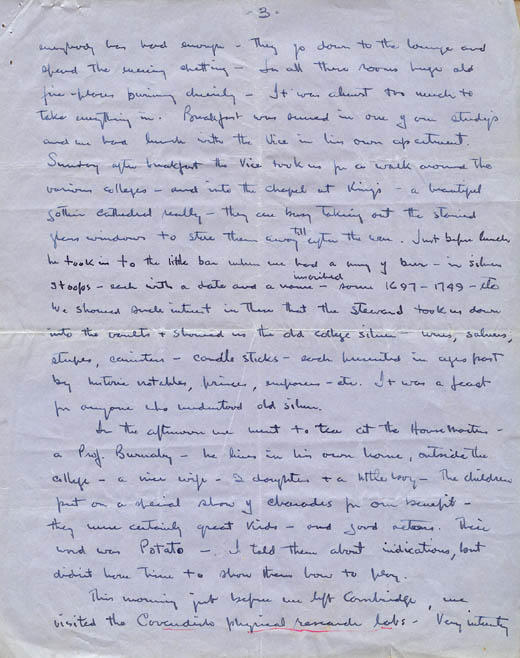 - 3 -
everybody has had enough - They go down to the lounge and
spend the evening chatting - In all these rooms huge old
fire-places burning cheerily - It was almost too much to
take everything in. Breakfast was served in one of our studys
and we had lunch with the Vice in his own apartment.
Sunday after breakfast the Vice took us for a walk around the
various colleges - and into the chapel at Kings - a beautiful
gothic cathedral really - they are busy taking out the stained
glass windows to store them away till after the war. Just before lunch
he took us to the little bar where we had a mug of beer - in silver
stoops - each with a date and a name inscribed - some 1697 - 1749 - etc
We showed such interest in these that the steward took us down
into the vaults + showed us the old college silver - urns, salvers,
stoops, canisters - candle sticks - each presented in ages past
by historic notables, princes, emperors - etc. It was a feast
for anyone who understood old silver.
In the afternoon we went to tea at the House Masters -
a Prof. Burnaby - he lives in his own home, outside the
college - a nice wife - 2 daughters + a little boy - The children
put on a special show of charades for our benefit -
they were certainly great kids - and good actors. Their
word was Potato - . I told them about indications, but
didn't have time to show them how to play.
This morning just before we left Cambridge, we
visited the Cavendish physical research labs - Very